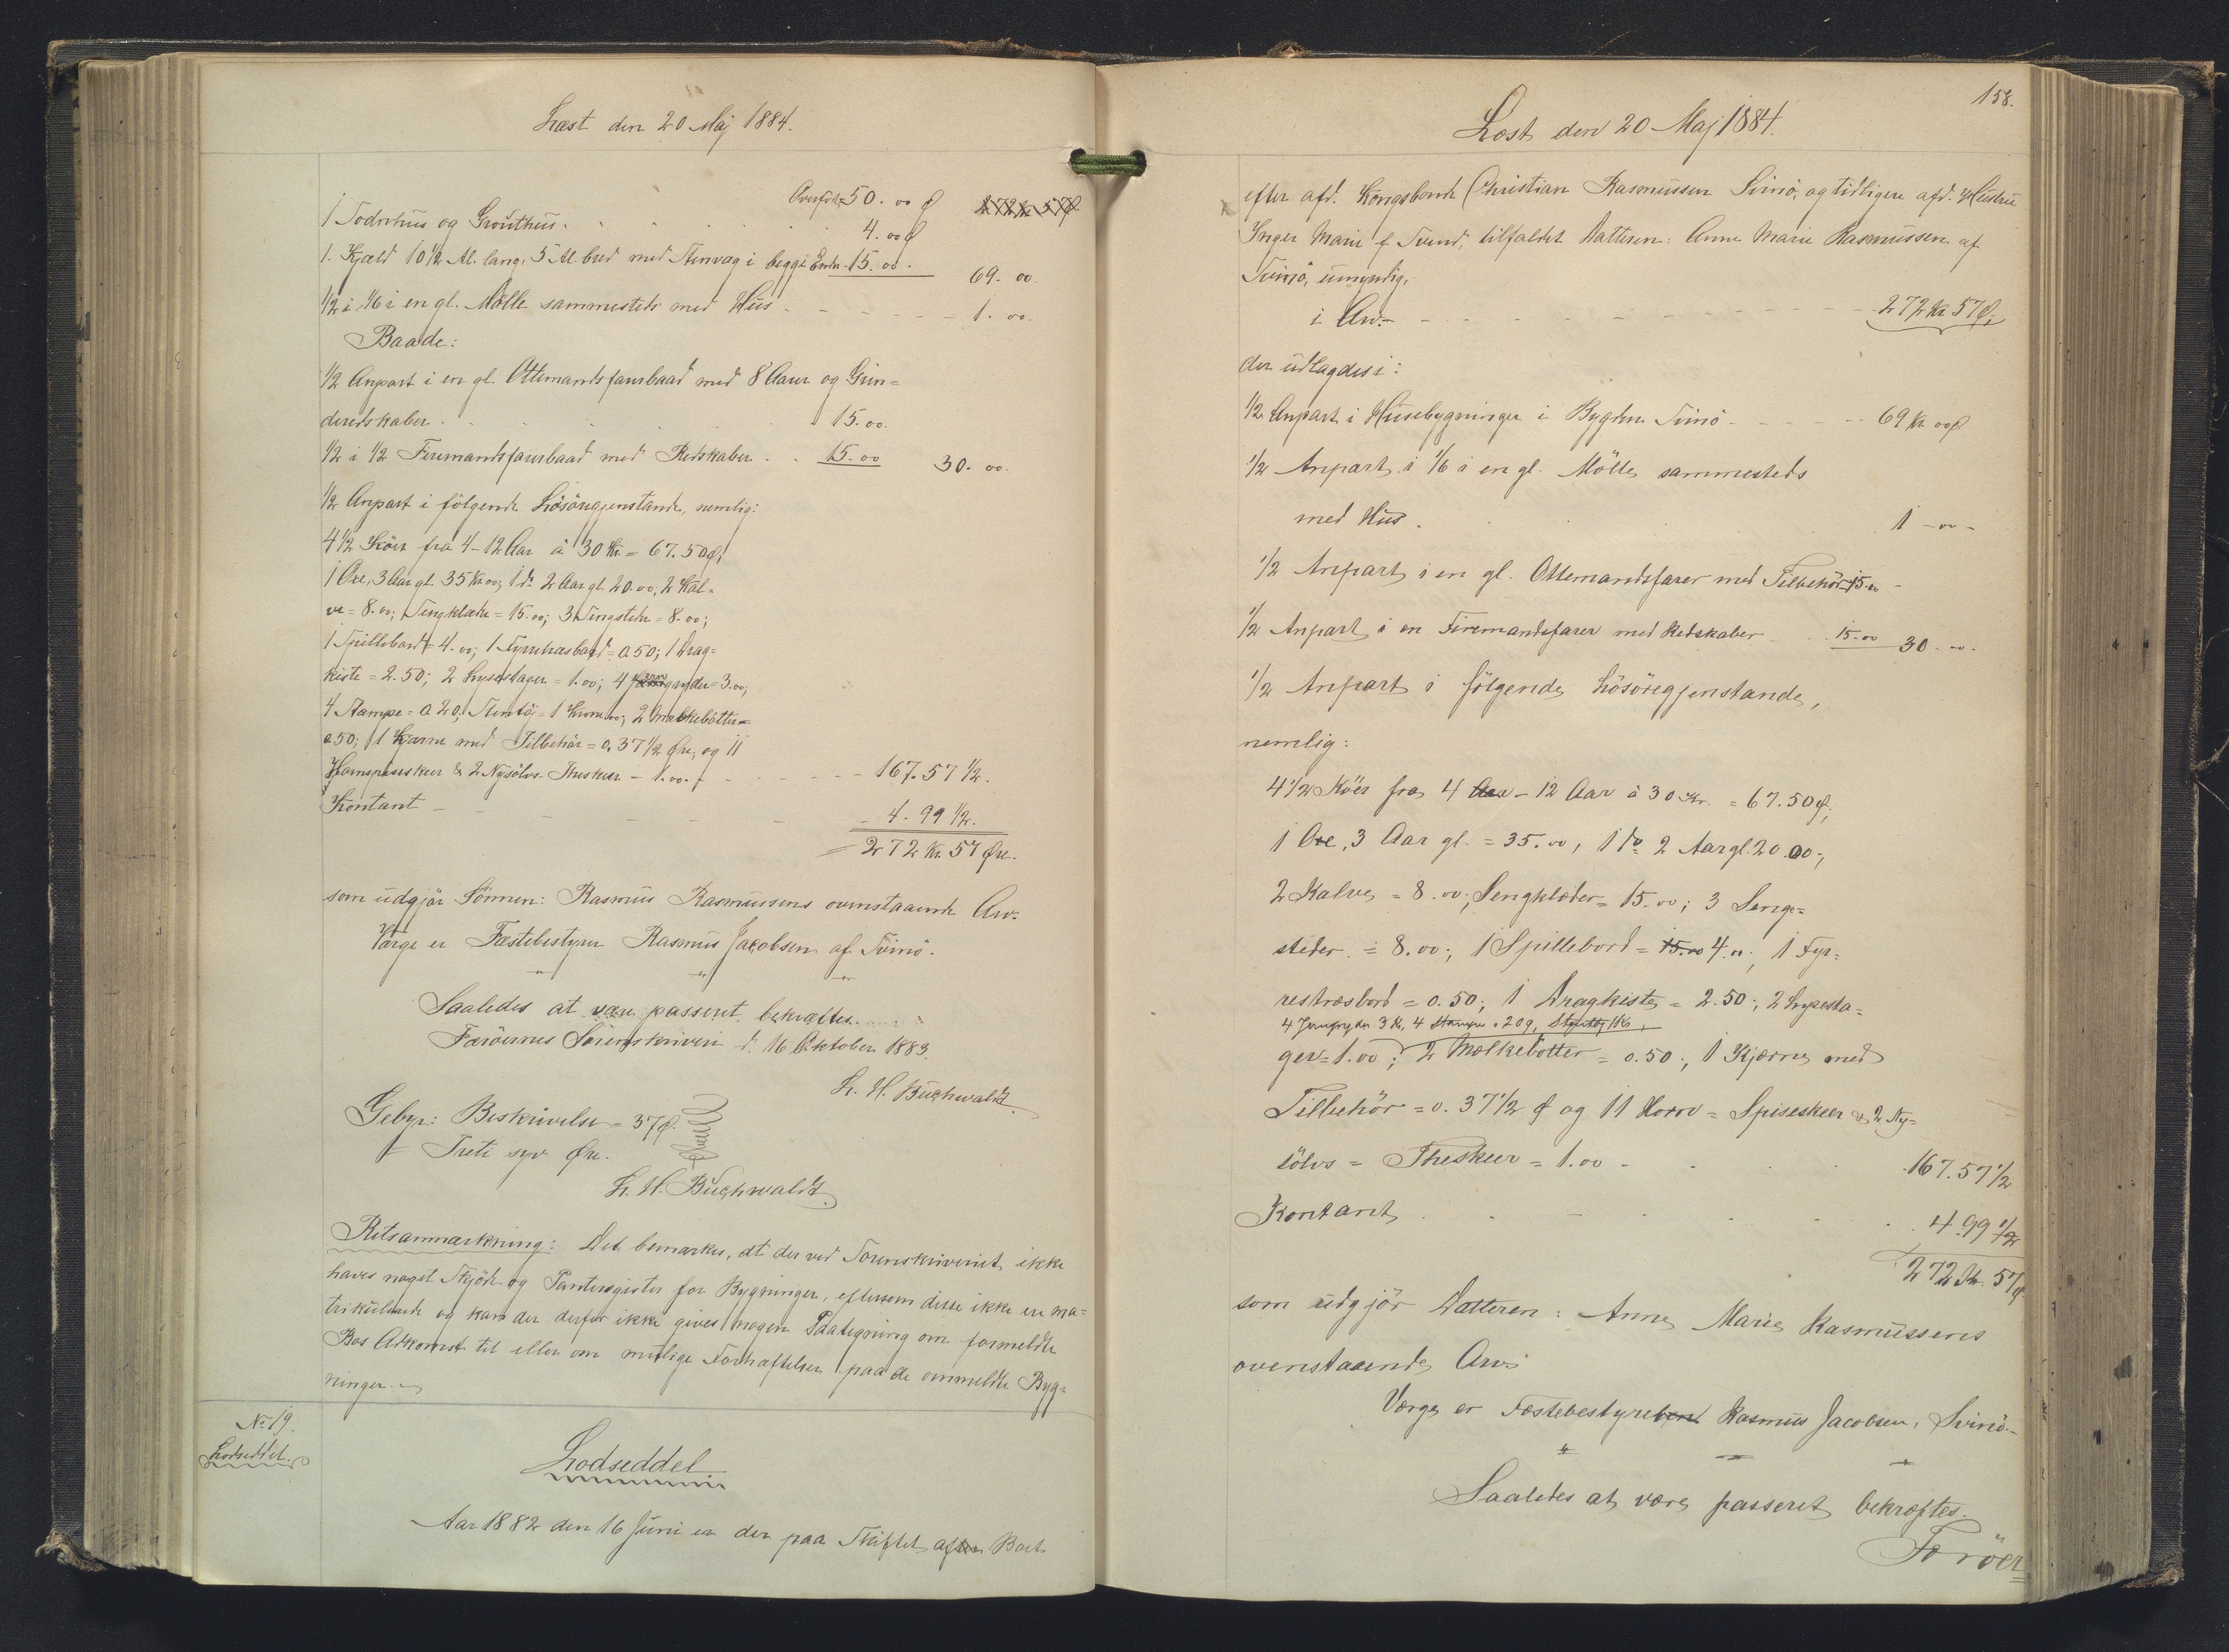 Læst den 20 Maj 1884.
Overført 50. 00 Ø 272 Kr 57 Ø.
1 Torvehus og Grouthus. 4. 00 Ø
1. Kjæld 10 1/2 Al. lang, 5 Al. bred med Stenvæg i begge Ender 15. 00. 69. 00.
1/2 i 1/6 i en gl. Mølle sammesteds med Hus - 1. 00.
Baade:
1/2 Anpart i en gl. Ottemandsfarsbaad med 8 Aarer og Grin=
deredskaber. 15. 00.
1/2 i 1/2 Firemandsfarsbaad med Redskaber. 15. 00 30. 00.
1/2 Anpart i følgende Løsøregjenstande, nemlig:
4 1/2 Køer fra 4-12 Aar à 30 Kr. = 67. 50 Ø;
1 Oxe, 3 Aar gl. 35 Kr 00; 1 do 2 Aar gl. 20. 00; 2 Kal=
ve = 8. 00; Sengklæder = 15. 00; 3 Sengsteder = 8. 00;
1 Spillebord = 4. 00; 1 Fyrretræsbord = 0. 50; 1 Drag=
kiste = 2. 50; 2 Lysestager = 1. 00; 4 Jerngryder = 3. 00;
4 Stampe = 0. 20; Stentøj = 1 Krone 00; 2 Mælkebøtter =
0. 50; 1 Kjærne med Tilbehør = 0, 37 1/2 Øre; og 11
Hornspiseskeer & 2 Nysølvs Theskeer - 1. 00. - 167. 57 1/2.
Kontant - 4. 99 1/2.
= 272 Kr. 57 Øre.
som udgjør Sønnen: Rasmus Rasmussens ovenstaaende Arv.
Værge er Fæstebestyrer Rasmus Jacobsen af Svinø.
Saaledes at være passeret bekræftes.
Færøernes Sorenskriveri d. 16 Oktober 1883.
L. H. Buchwaldt.
Gebyr: Beskrivelse = 37 Ø.
= Treti syv Øre.
L. H. Buchwaldt
Retsanmærkning: Det bemærkes, at der ved Sorenskriveriet ikke
haves noget Skjøde og Panteregister for Bygninger, eftersom disse ikke ere ma=
trikulerede og kan der derfor ikke gives nogen Paategning om formeldte
Bos Adkomst til eller om mulige Forhæftelser paa de ommeldte Byg=
ninger.
No 19.
Lodseddel.
Lodseddel
Aar 1882 den 16 Juni er der paa Skiftet efter Boet
158.
Læst den 20 Maj 1884.
efter afd. Kongsbonde Christian Rasmussen Svinø, og tidligere afd. Hustru
Inger Marie f. Svend, tilfaldet Datteren: Anne Marie Rasmussen af
Svinø, umyndig,
i Arv - 272 Kr 57 Ø;
der udlagdes i:
1/2 Anpart i Husebygninger i Bygden Svinø - 69 Kr 00 Ø
1/2 Anpart i 1/6 i en gl. Mølle sammesteds
med Hus. 1 - 00 -
1/2 Anpart i en gl. Ottemandsfarer med Tilbehør 15. 00 -
1/2 Anpart i en Firemandsfarer med Redskaber 15. 00 30 - 00.
1/2 Anpart i følgende Løsøregjenstande,
nemlig:
4 1/2 Køer fra 4 Aar - 12 Aar à 30 Kr. = 67. 50 Ø;
1 Oxe, 3 Aar gl. = 35. 00, 1 do 2 Aar gl. 20. 00;
2 Kalve = 8. 00; Sengklæder = 15. 00; 3 Senge=
steder = 8. 00; 1 Spillebord = 15. 00 4. 00; 1 Fyr=
retræsbord = 0. 50; 1 Dragkiste = 2. 50; 2 Lysesta=
4 Jerngryder 3 Kr, 4 Stampe 0 20 Ø, Stentøj 1 Kr,
ger = 1. 00; 2 Mælkebøtter = 0. 50; 1 Kjærne med
Tilbehør = 0. 37 1/2 Ø og 11 Horn = Spiseskeer & 2 Ny=
sølvs = Theskeer = 1. 00 - 167. 57 1/2
Kontant 4. 99 1/2
272 Kr. 57 Ø
som udgjør Datteren: Anne Marie Rasmussens
ovenstaaende Arv.
Værge er Fæstebestyreren Rasmus Jacobsen, Svinø.
Saaledes at være passeret bekræftes.
Færøer=